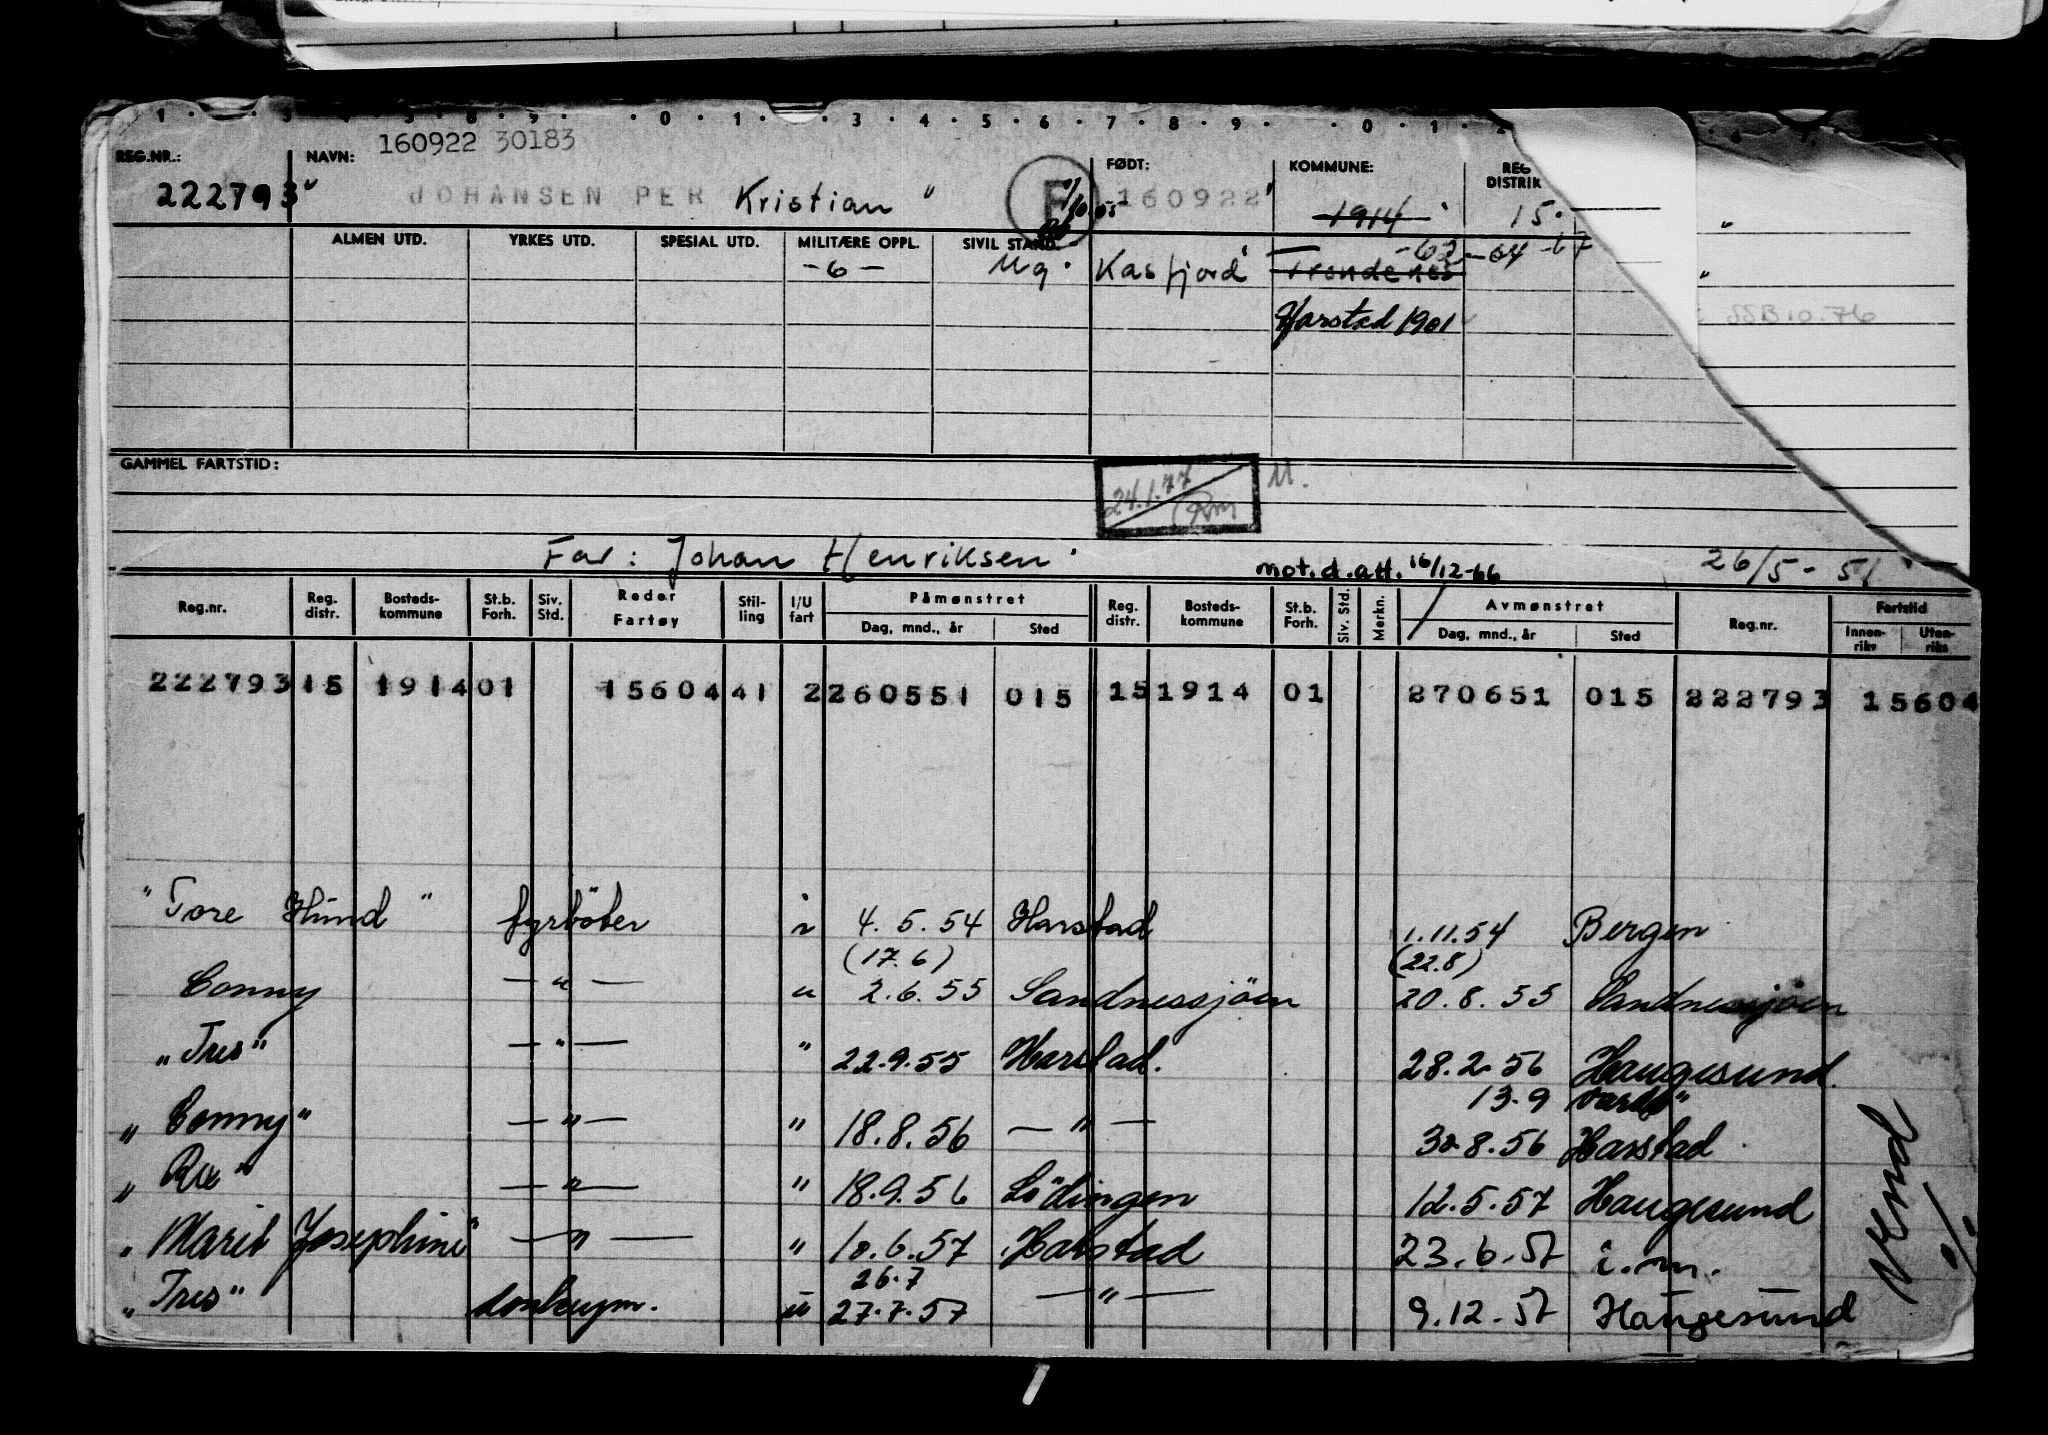 160922 30183
REG.NR.: NAVN: FØDT: KOMMUNE: REG DISTRIK
222793 JOHANSEN PER Kristian " F 160922" 1914 15.
ALMEN UTD. YRKES UTD. SPESIAL UTD. MILITÆRE OPPL. SIVIL STAND.
-62-64-67
-6- Ug. Kasfjord Trondenes
Harstad 1901
GAMMEL FARTSTID:
24.1.77 M.
Far: Johan Henriksen
mot.d.att. 16/12-66 26/5-51
Reg.nr. Reg. distr. Bosteds-kommune St.b. Forh. Siv. Std. Reder Fartøy Stil-ling I/U fart Påmønstret Dag, mnd., år Sted Reg. distr. Bosteds-kommune St.b. Forh. Siv. Std. Merkn. Avmønstret Dag, mnd., år Sted Reg.nr. Fartstid Innen-riks Uten-riks
222793 15 1914 01 15604 41 2 260551 015 15 1914 01 270651 015 222793 15604
"Tore Hund" fyrböter i 4.5.54 Harstad 1.11.54 Bergen
(17.6) (22.8)
Conny — " — u 2.6.55 Sandnessjöen 20.8.55 Sandnessjöen
"Tres" — " — " 22.9.55 Harstad. 28.2.56 Haugesund
13.9 Vardø"
"Conny" — " — " 18.8.56 — " — 30.8.56 Harstad
— " — " 18.9.56 Lödingen 12.5.57 Haugesund
"Marit Josephine" — " — " 10.6.57 Harstad 23.6.57 i.m.
26.7
"Tres" donkeym. u 27.7.57 — " — 9.12.57 Haugesund
Vend